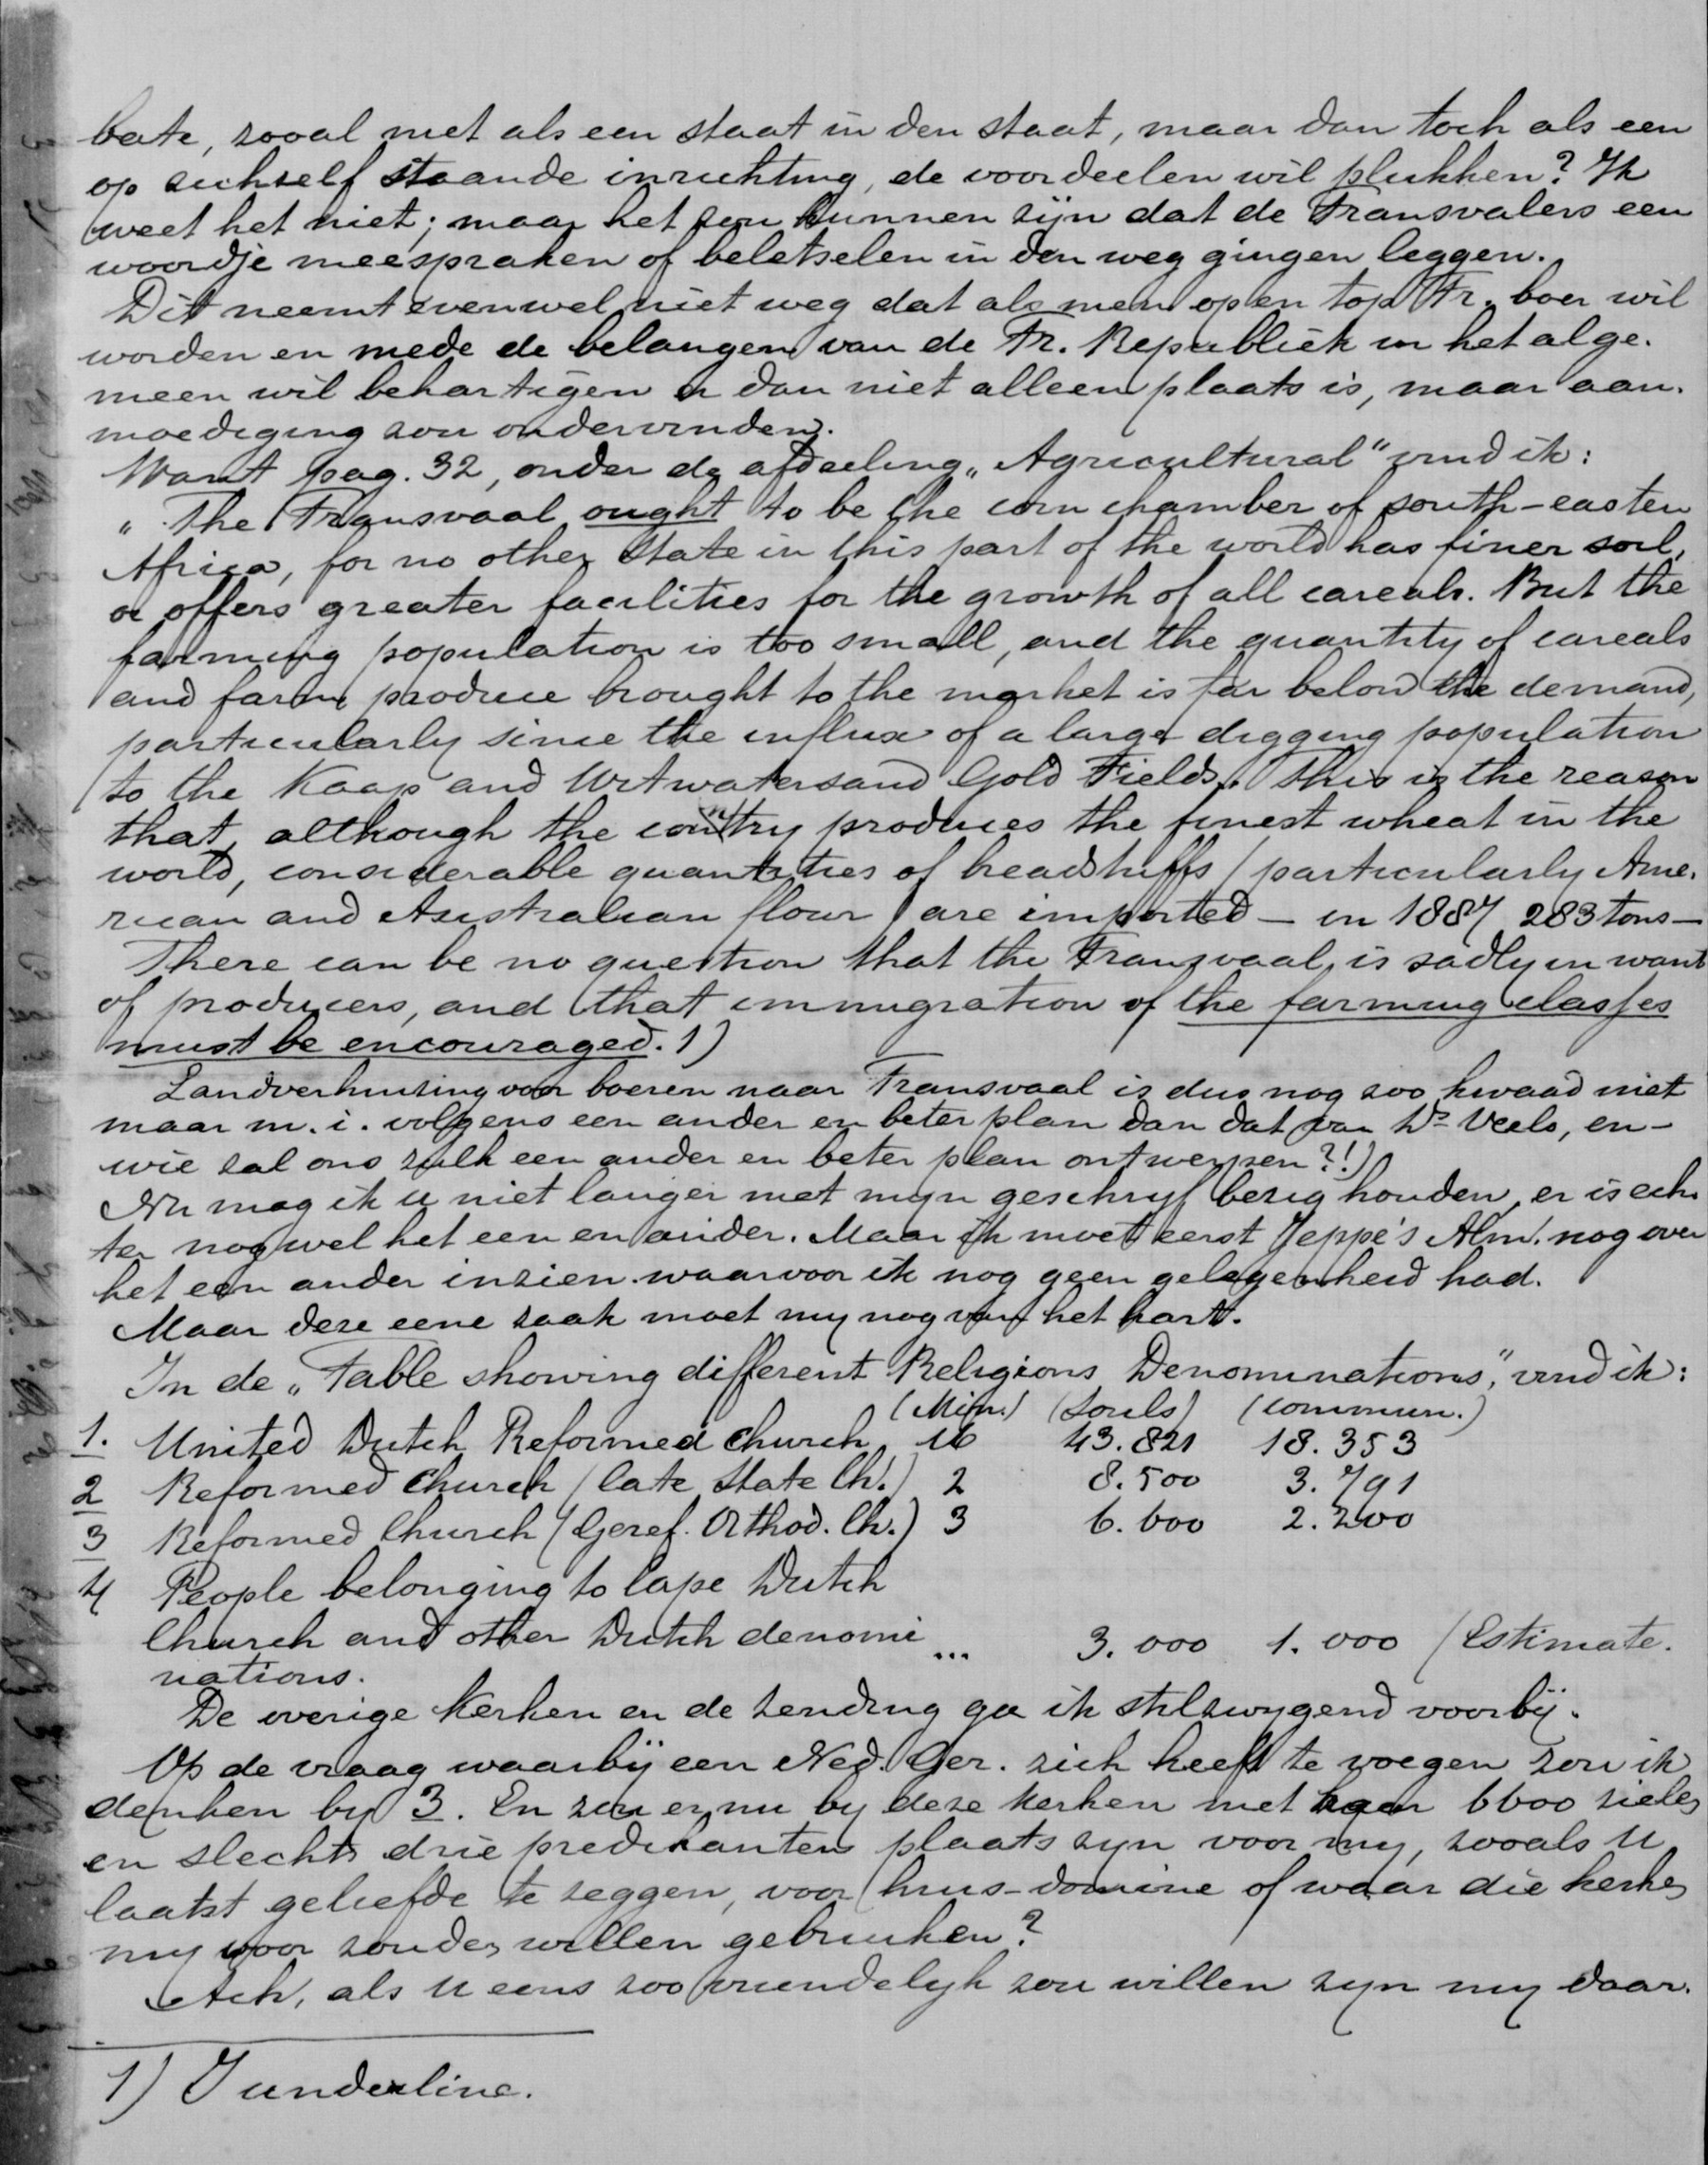 bate, zooal niet als een staat in den staat, maar dan toch als een
op zichzelf staande inrichting, de voordeelen wil plukken? Ik
weet het niet; maar het zou kunnen zijn dat de Transvalers een
woordje meespraken of beletselen in den weg gingen leggen.
Dit neemt evenwel niet weg dat als men op en top Tr. boer wil
worden en mede de belangen van de Tr. Republiek in het alge-
meen wil behartigen er dan niet alleen plaats is, maar aan-
moediging zou ondervinden.
Want pag. 32, onder de afdeeling „Agricultural" vind ik:
„The Transvaal ought to be the corn chamber of south-easten
Africa, for no other State in this part of the world has finer soil,
or offers greater facilities for the growth of all careals. But the
farming population is too small, and the quantity of careals
and farm produce brought to the market is far below the demand,
particularly since the influx of a large digging population
to the Kaap and Witwatersand Gold Fields. This is the reason
that, although the country produces the finest wheat in the
world, considerable quantities of breadstuffs (particularly Ame-
rican and Australian flour) are imported — in 1887 283 tons —
There can be no question that the Transvaal is sadly in want
of producers, and that immigration of the farming classes
must be encouraged. 1)
Landverhuizing voor boeren naar Transvaal is dus nog zoo kwaad niet
maar m. i. volgens een ander en beter plan dan dat van Ds Veels, en –
wie zal ons zulk een ander en beter plan ontwerpen?!)
Nu mag ik u niet langer met mijn geschrijf bezig houden, er is ech-
ter nog wel het een en ander. Maar ik moet eerst Jeppe's Alm. nog over
het een ander inzien waarvoor ik nog geen gelegenheid had.
Maar deze eene zaak moet my nog van het hart.
In de „Table showing different Religions Denominations," vind ik:
(Min.) (Souls) (commun.)
1. United Dutch Reformed Church 16 43.821 18.353
2 Reformed Church (late State Ch.) 2 8.500 3.791
3 Reformed Church (Geref. Orthod. Ch.) 3 6.600 2.200
4 People belonging to Cape Dutch
Church and other Dutch denomi ... 3.000 1.000 (Estimate.
nations.
De overige Kerken en de zending ga ik stilzwygend voorbij.
Op de vraag waarbij een Ned. Ger. zich heeft te voegen zou ik
denken by 3. En zou er nu by deze Kerken met haar 6600 zielen
en slechts drie predikanten plaats zyn voor my, zooals U
laatst geliefde te zeggen, voor huis-domine of waar die kerken
my voor zouden willen gebruiken?
Ach, als U eens zoo vriendelyk zou willen zyn my daar-
1) I underline.